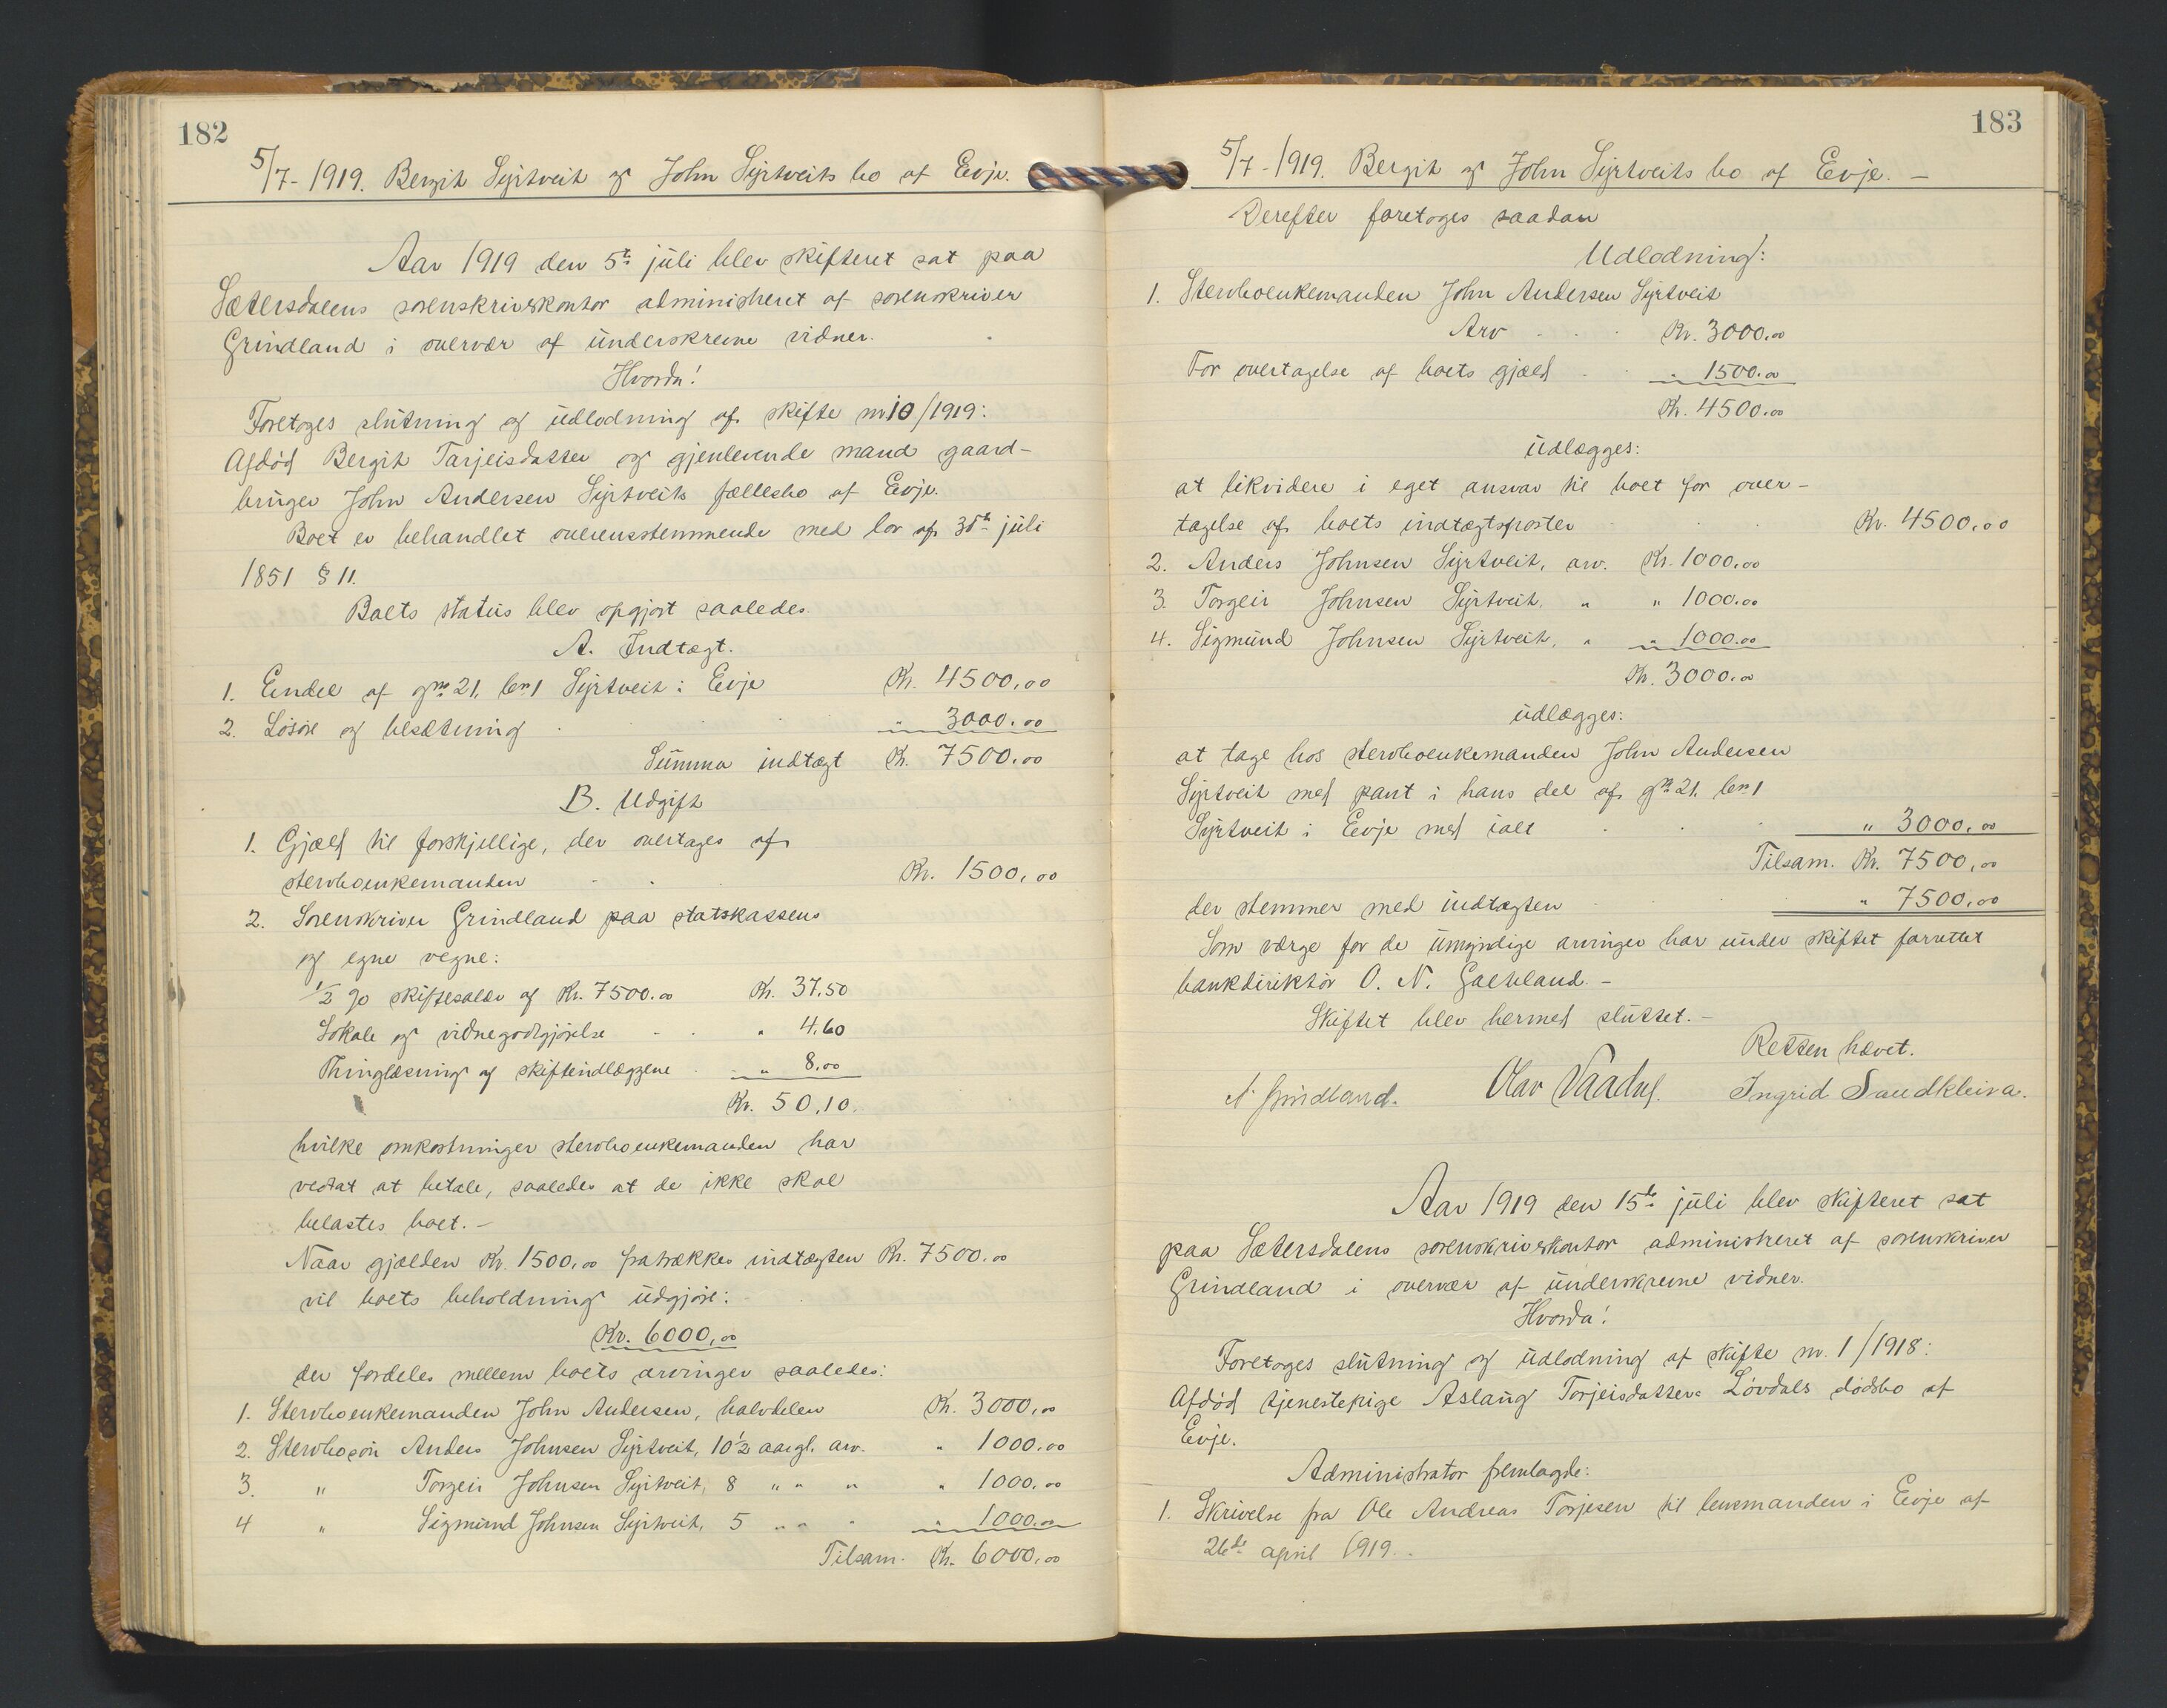 182
5/7-1919. Bergit Syrtveit og John Syrtveits bo af Evje.
Aar 1919 den 5te juli blev skifteret sat paa
Sætersdalens sorenskriverkontor administreret af sorenskriver
Grindland i overvær af underskrevne vidner.
Hvorda!
Foretoges slutning og udlodning af skifte nr 10/1919:
Afdød Bergit Tarjeisdatter og gjenlevende mand gaard-
bruger John Andersen Syrtveits fællesbo af Evje.
Boet er behandlet overensstemmende med lov af 30te juli
1851 § 11.
Boets status blev opgjort saaledes.
A. Indtægt.
1. Endel af gno 21, bno 1 Syrtveit i Evje Kr. 4500,00
2. Løsøre og besætning " 3000.00
Summa indtægt Kr. 7500.00
B. Udgift
1. Gjæld til forskjellige, der overtages af
stervboenkemanden Kr. 1500,00
2. Sorenskriver Grindland paa statskassens
og egne vegne:
1/2 % skiftesalær af Kr. 7500.00 Kr. 37,50
Lokale og vidnegodtgjørelse " 4.60
Thinglæsning af skifteudlæggene " 8,00
Kr. 50,10.
hvilke omkostninger stervboenkemanden har
vedtat at betale, saaledes at de ikke skal
belastes boet.-
Naar gjælden Kr. 1500,00 fratrækkes indtægten Kr. 7500.00
vil boets beholdning udgjøre:
Kr. 6000,00
der fordeles mellem boets arvinger saaledes:
1. Stervboenkemanden John Andersen, halvdelen Kr. 3000,00
2. Stervbosøn Anders Johnsen Syrtveit, 10 1/2 aar gl. arv. " 1000.00
3. " Torgeir Johnsen Syrtveit, 8 " " " " 1000,00
4 " Sigmund Johnsen Syrtveit, 5 " " " " 1000.00
Tilsam. Kr. 6000,00
183
5/7-1919. Bergit og John Syrtveits bo af Evje. -
Derefter foretoges saadan
Udlodning:
1. Stervboenkemanden John Andersen Syrtveit
Arv Kr. 3000.00
For overtagelse af boets gjæld " 1500.00
Kr. 4500.00
udlægges:
at likvidere i eget ansvar til boet for over-
tagelse af boets indtægtsposter Kr. 4500,00
2. Anders Johnsen Syrtveit, arv. Kr. 1000,00
3. Torgeir Johnsen Syrtveit, " " 1000.00
4. Sigmund Johnsen Syrtveit, " " 1000.00
Kr. 3000.00
udlægges:
at tage hos stervboenkemanden John Andersen
Syrtveit med pant i hans del af gno 21. bno 1
Syrtveit i Evje med ialt " 3000,00
Tilsam. Kr. 7500,00
der stemmer med indtægten " 7500,00
Som værge for de umyndige arvinger har under skiftet forrettet
bankdirektør O. N. Galteland. -
Skiftet blev hermed sluttet. -
Retten hævet.
Grindland. Olav Ingrid Saudkleiva.
Aar 1919 den 15de juli blev skifteret sat
paa Sætersdalens sorenskriverkontor administreret af sorenskriver
Grindland i overvær af underskrevne vidner.
Hvorda!
Foretoges slutning og udlodning af skifte nr. 1/1918:
Afdød tjenestepige Aslaug Torjeisdatter Løvdals dødsbo af
Evje.
Administrator fremlagde:
1. Skrivelse fra Ole Andreas Torjesen til lensmanden i Evje af
26de april 1919.